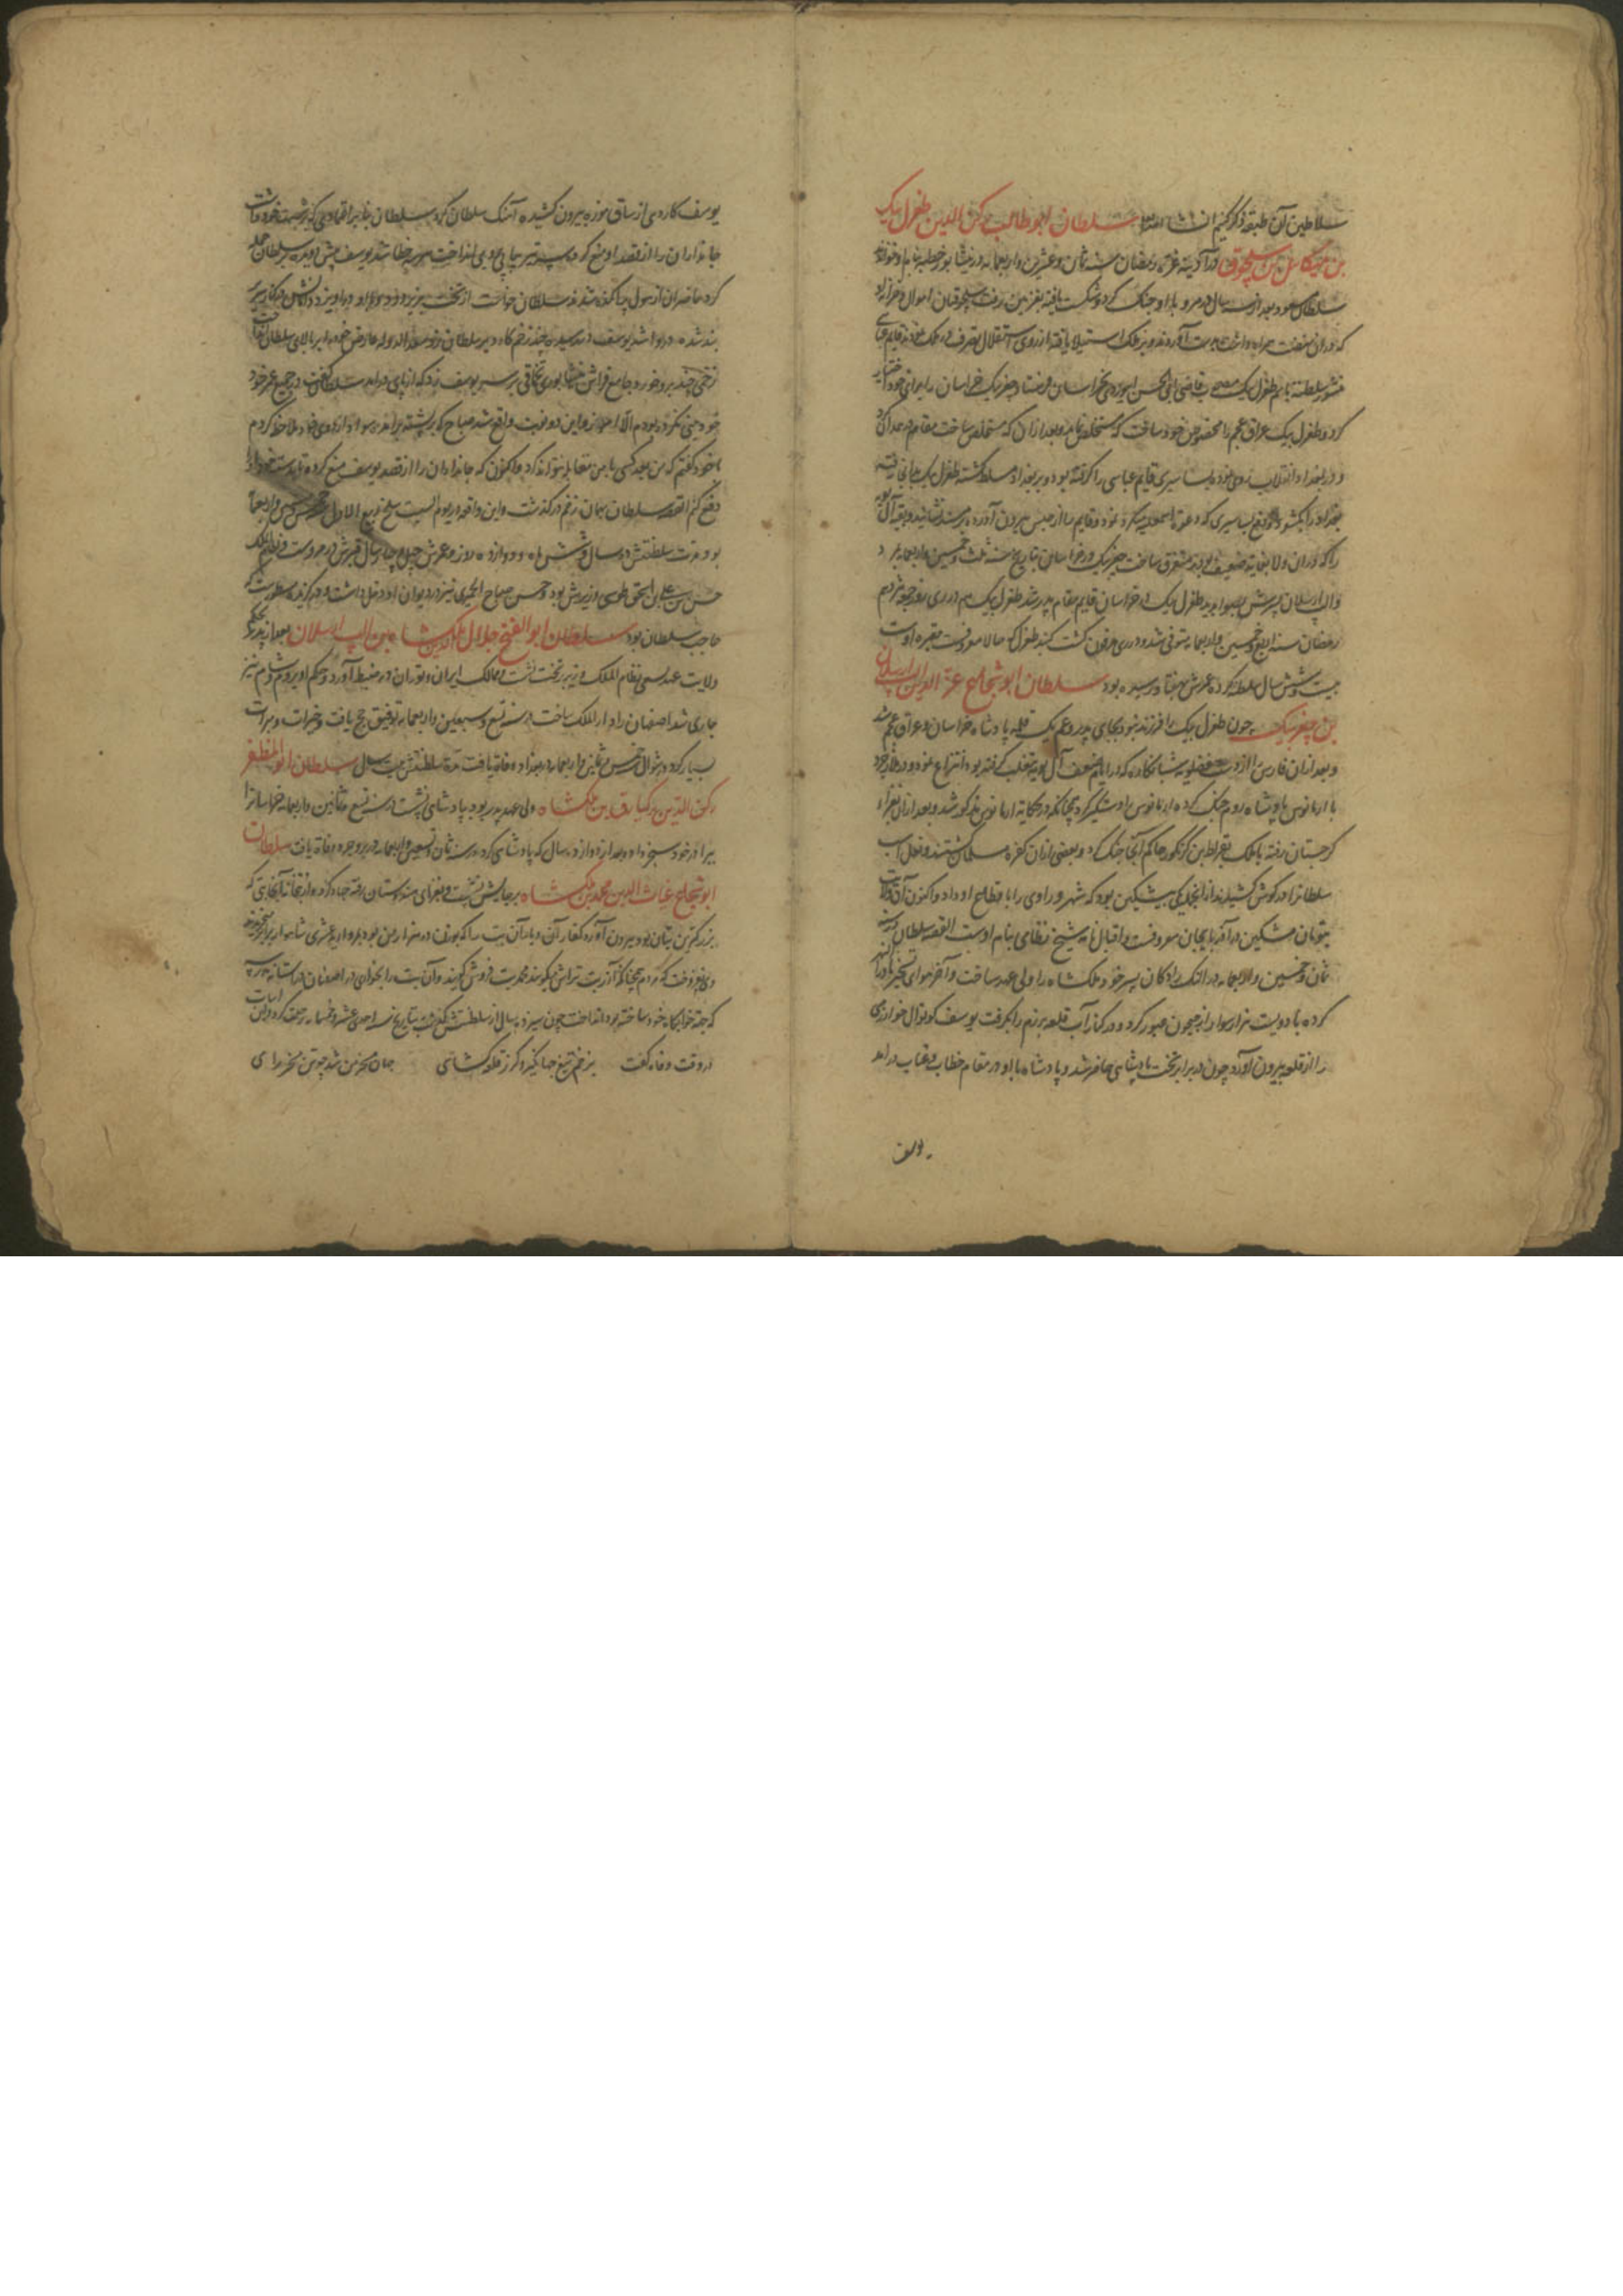 سلاطین آن طبقه ذکر کنیم ان شاء الله تعالی سلطان ابوطالب رکن الدین طغرل بیک
بن میکائیل بن سلجوق در آدینه غره رمضان سنه ثمان و عشرین و اربعمایه در نیشابور خطبه بنام او خواندند
سلطان مسعود بعد از سه سال در مرو با او جنگ کرد و شکست یافته بغزنین رفت سلجوقیان اموال و خزاین
که در آن نهضت همراه داشت بدست آوردند و بر ملک استیلا یافته از روی استقلال تصرف در ملک نمودند قایم عباسی
منشور سلطنة بنام طغرل بیک مصحوب قاضی ابی الحسن بخراسان فرستاد و چغر بیک خراسان را برای خود اختیار
کرد و طغرل بیک عراق عجم را مخصوص خود ساخت که مستخلص نماید و بعد از آن که مستخلص ساخت مقام در همدان کرد
و در بغداد انقلاب روی نمود بساسیری قایم عباسی را گرفته بود و بر بغداد مسلط گشته طغرل بیک بدانجا رفته
بغداد را بکشود و دفع بساسیری که دعوة اسمعیلیه میکرد نمود و قایم را از حبس بیرون آورده بر مسند نشانید و بقیه آل بویه
را که در آن ولا بغایة ضعیف بودند متفرق ساخت چغر بیک در خراسان بتاریخ سنه ثلث و خمسین و اربعمایه بمرد
و الب ارسلان پسرش بصوابدید طغرل بیک در خراسان قایم مقام پدر شد طغرل بیک هم در ری روز جمعه هژدهم
رمضان سنه اربع و خمسین و اربعمایه متوفی شد و در ری مدفون گشت گنبد طغرل که حالا معروفست مقبره اوست
بیست و شش سال سلطنة کرده عمرش بهفتاد رسیده بود سلطان ابو شجاع عز الدین الب ارسلان
بن چغر بیک چون طغرل بیک را فرزند نبود بجای پدر و عم یک قلم پادشاه خراسان و عراق عجم شد
و بعد از آن فارس را از دست فضلویه شبانکاره که در ایام ضعف آل بویه بتغلب گرفته بود انتزاع نمود و
با ارمانوس پادشاه روم جنگ کرده ارمانوس را دستگیر کرد چنانکه در حکایة ارمانوس مذکور شد و بعد از آن بغزاء
گرجستان رفته با ملک بقراط بن گرگور حاکم آنجا جنگ کرد و بعضی از آن کفره مسلمان گشتند و نعل اسب
سلطان را در گوش کشیدند از آنجمله یکی بیشکین بود که شهر وراوی را با قطاع او داد و اکنون آن ولایت
بتومان مشکین در آذربایجان معروفست و اقبال نامه شیخ نظامی بنام اوست القصه سلطان در سنه
ثمان و خمسین و اربعمایه در النک رادکان پسر خود ملک شاه را ولی عهد ساخت و آخر هوای تسخیر ماوراء النهر
کرده با دویست هزار سوار از جیحون عبور کرد و در کنار آب قلعه برزم را بگرفت یوسف کوتوال خوارزمی
را از قلعه بیرون آورد چون در برابر تخت پادشاهی حاضر شد و پادشاه با او در مقام خطاب و عتاب درآمد
یوسف
یوسف کاردی از ساق موزه بیرون کشیده آهنگ سلطان کرد سلطان بنا بر اعتمادی که بر شست خود داشت
جانداران را از قصد او منع کرد و سه تیر پیاپی بوی انداخت هر سه خطا شد یوسف پیش دوید بر سلطان حمله
کرد حاضران از هول پراکنده شدند سلطان خواست از تخت بزیر رود و با او درآویزد دامنش در کنار سریر
بند شده در روا شد یوسف در رسید چند زخم کارد بر سلطان زد سعد الدوله عارض خود را بر بالای سلطان انداخت
زخمی چند برو خورد جامع فراش نیشابوری تخماقی بر سر یوسف زد که از پای درآمد سلطان گفت در جمیع عمر خود
خود بینی نکرده بودم الا امروز و این دو نوبت واقع شد صباح که بر پشته برآمدم سواد اردوی خود ملاحظه کردم
با خود گفتم که من بعد کسی با من مقابله نتواند کرد و اکنون که جانداران را از قصد یوسف منع کرده تا بدست خود او را
دفع کنم القصه سلطان بهمان زخم درگذشت و این واقعه در یوم السبت سلخ ربیع الاول خمس و ستین و اربعمایه
بود مدت سلطنتش ده سال و شش ماه و دوازده روز و عمرش چهل و چهار سال قبرش در مروست و نظام الملک
حسن بن علی بن اسحق طوسی وزیرش بود و حسن صباح الحمیری نیز در دیوان او دخل داشت و در گزیده مسطورست که
حاجب سلطان بود سلطان ابو الفتح جلال الدین ملکشاه بن الب ارسلان بعد از پدر بحکم
ولایت عهد بسعی نظام الملک وزیر بر تخت نشست و ممالک ایران و توران در ضبط آورد و حکم او بر روم و شام نیز
جاری شد اصفهان را دار الملک ساخت در سنه تسع و سبعین و اربعمایه توفیق حج یافت و خیرات و مبرات
بسیار کرد و در شوال خمس و ثمانین و اربعمایه در بغداد وفاة یافت مدة سلطنتش بیست سال سلطان ابو المظفر
رکن الدین برکیارق بن ملکشاه ولی عهد پدر بود بپادشاهی نشست در سنه تسع و ثمانین و اربعمایه خراسان را
ببرادر خود سنجر داد و بعد از دوازده سال که پادشاهی کرد در سنه ثمان و تسعین و اربعمایه در بروجرد وفاة یافت سلطان
ابو شجاع غیاث الدین محمد بن ملک شاه بر جایش نشست و بغزای هندوستان رفته جهاد کرد و از بتخانه آنجا بتی که
بزرگترین بتان بود بیرون آورد کفار آن دیار آن بت را که بوزن ده هزار من بود بمروارید عشری شاهوار برابر میخریدند
وی نفروخت که مردم چنانکه آزر بت تراش میگویند محمد بت فروش گویند و آن بت را بخواری در اصفهان در آستانه مدرسه
که جهة خوابگاه خود ساخته بود انداخت چون سیزده سال از سلطنتش گذشت بتاریخ سنه احدی عشر و خمسمایه رحلت کرد و این ابیات
در وقت وفاة گفت بزخم تیغ جهانگیر و گرز قلعه گشای جهان مسخر من شد چو تن مسخر رای